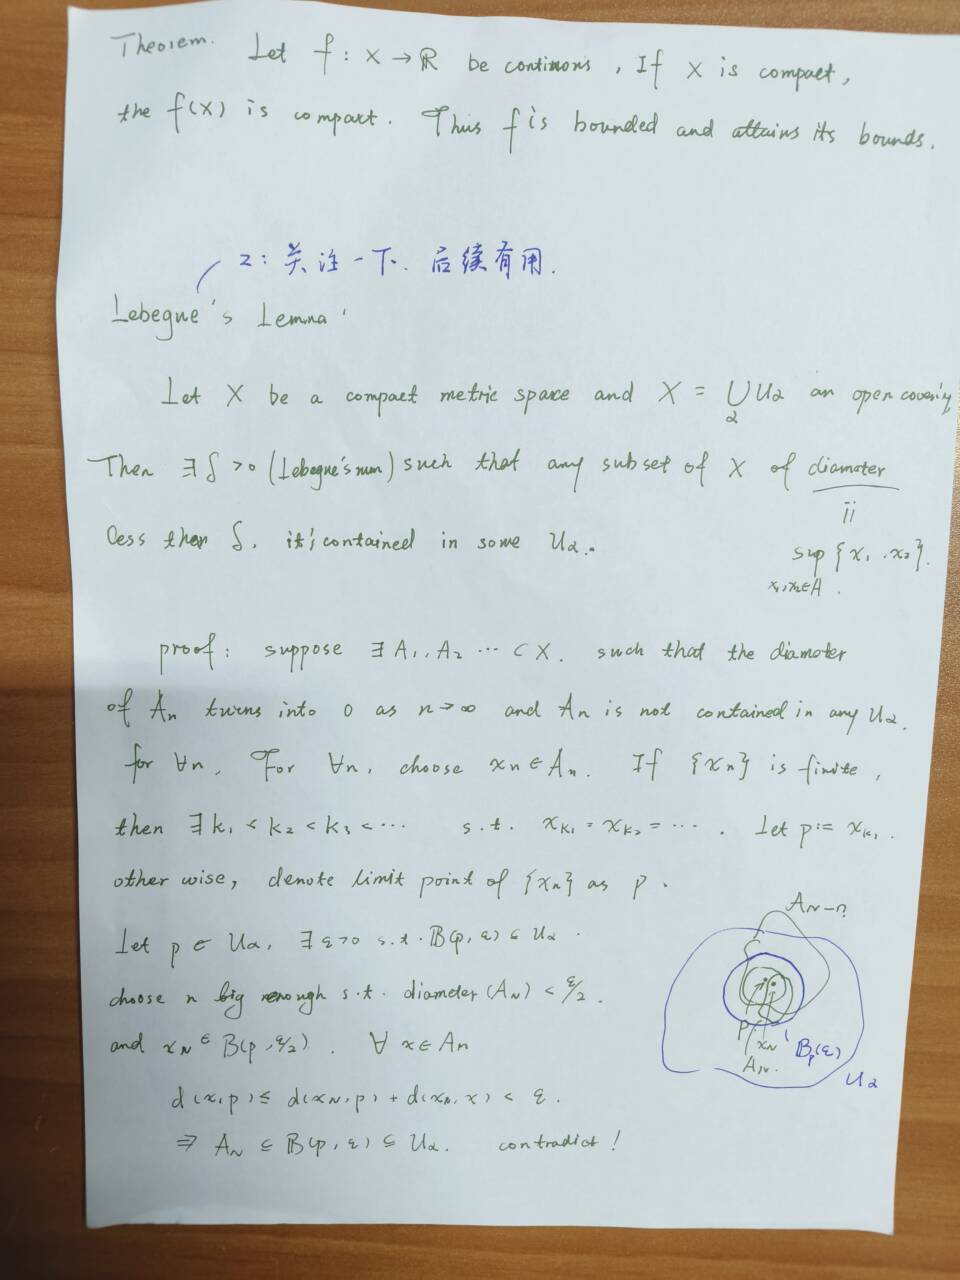 Theorem. Let f : X → ℝ be continous, If X is compact,
the f(X) is compact. Thus f is bounded and attains its bounds.
2: 关注一下. 后续有用.
Lebegue's Lemma
Let X be a compact metric space and X = ⋃_α U_α an open covering
Then ∃ δ > 0 (Lebegue's num) such that any subset of X of diameter
less then δ, it's contained in some U_α.
ii
sup {x₁, x₂}.
x₁,x₂∈A
proof: suppose ∃ A₁, A₂ ⋯ ⊂ X. such that the diameter
of A_n turns into 0 as n→∞ and A_n is not contained in any U_α.
for ∀n. For ∀n, choose x_n ∈ A_n. If {x_n} is finite,
then ∃ k₁ < k₂ < k₃ < ⋯ s.t. x_k₁ = x_k₂ = ⋯. Let p := x_k₁.
other wise, denote limit point of {x_n} as p.
Let p ∈ U_α, ∃ ε>0 s.t. B(p, ε) ⊆ U_α.
choose n big enough s.t. diameter (A_N) < ε/2.
and x_N ∈ B(p, ε/2). ∀ x ∈ A_n
d(x,p) ≤ d(x_N,p) + d(x_n,x) < ε.
⇒ A_N ⊆ B(p, ε) ⊆ U_α. contradict!
A_N-?
p x_N B_p(ε)
A_N. U_α